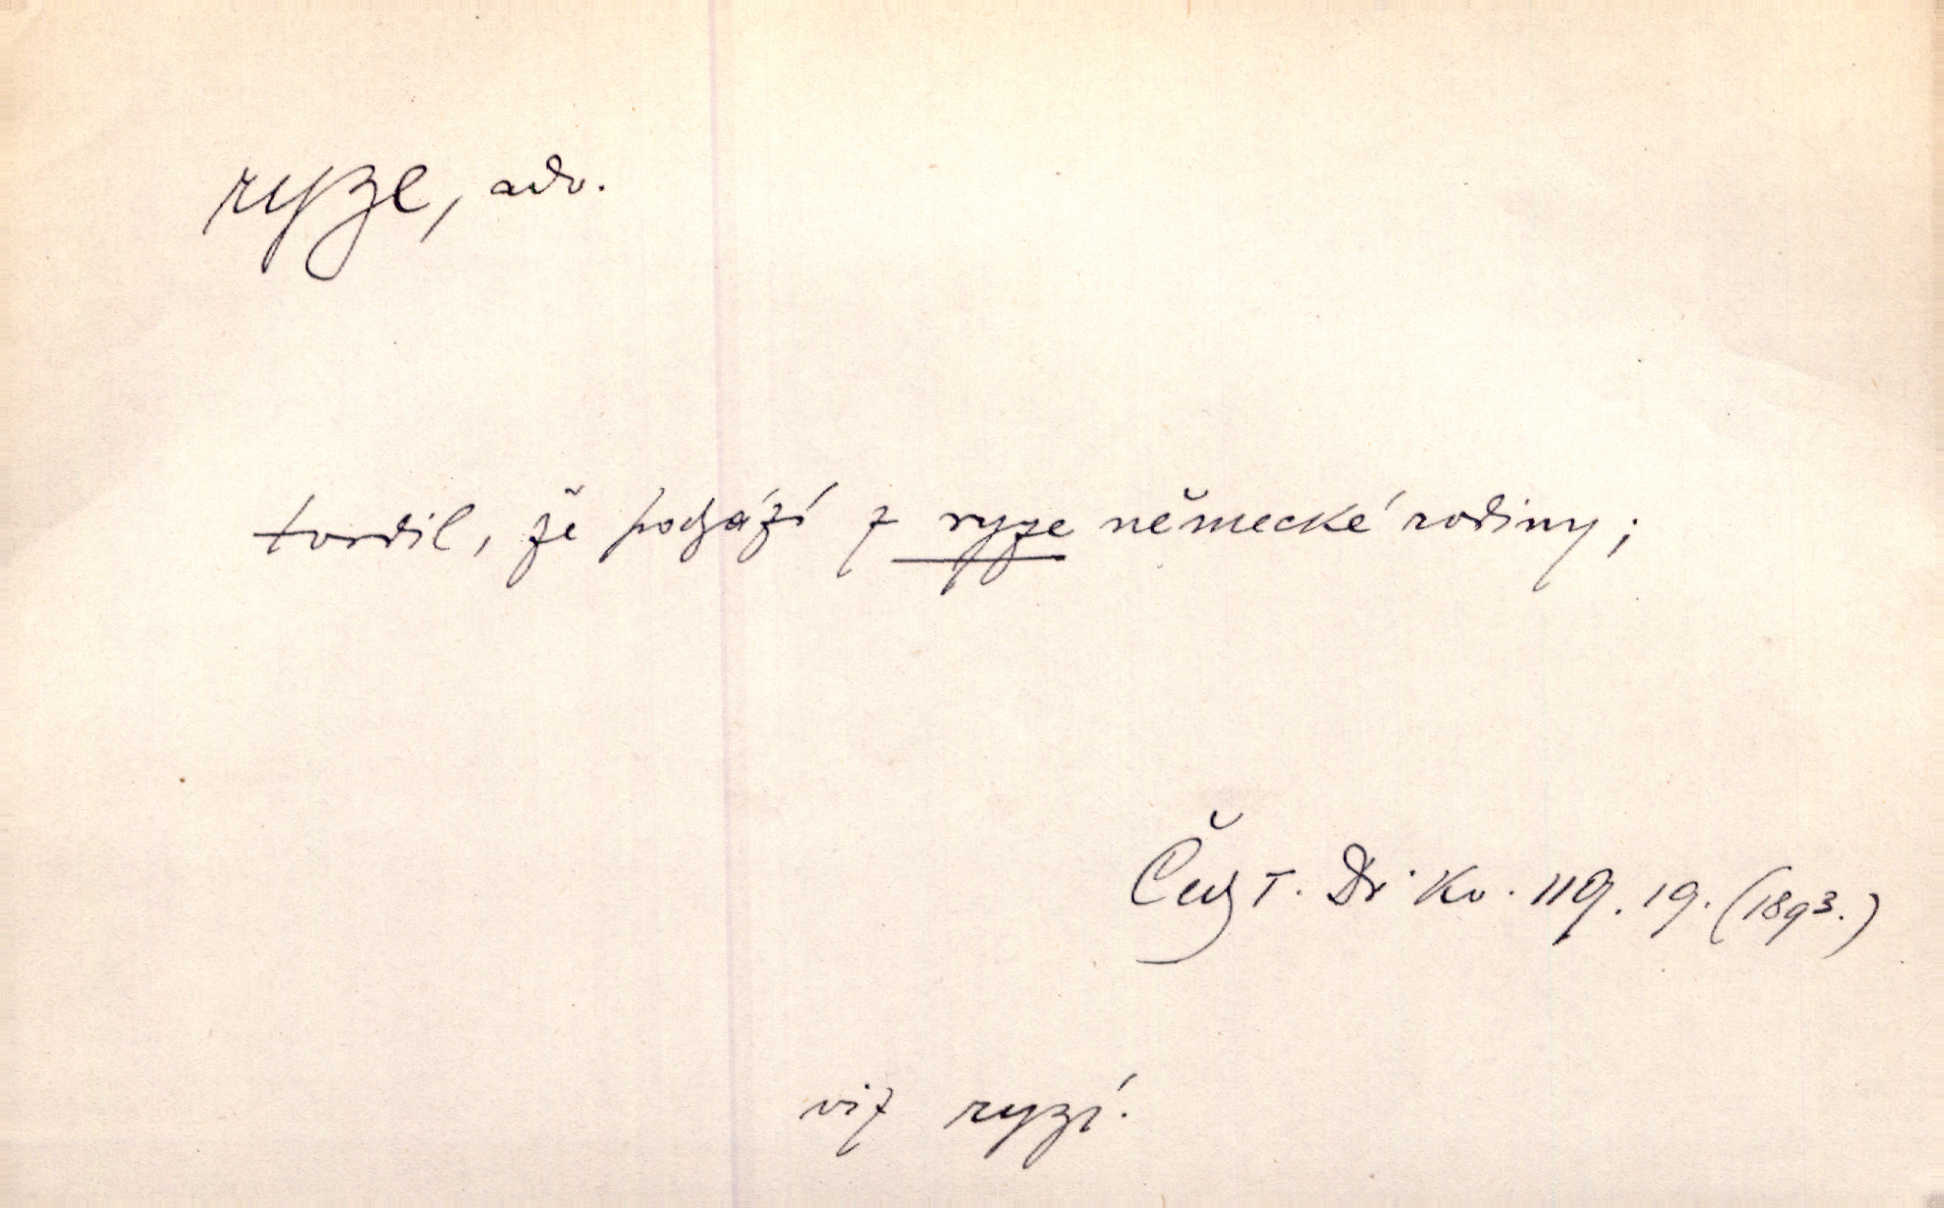 ryze, adv.
tvrdil, že pochází z ryze německé rodiny;
Čech T. Dr. Kv. 119. 19. (1893.)
viz ryzí.